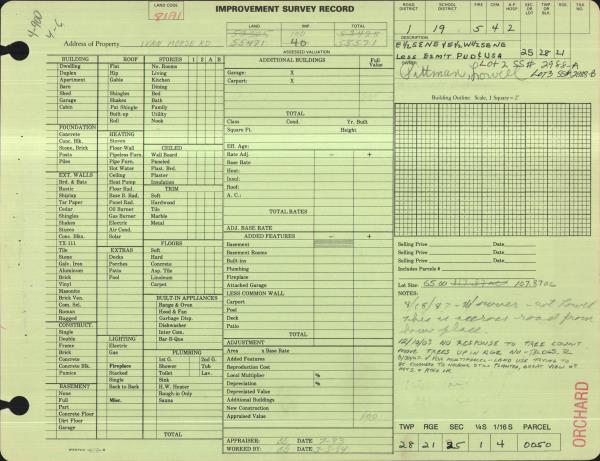 IMPROVEMENT SURVEY RECORD
LAND CODE
8181
4-900
4-C
LAND IMP. TOTAL
55481 40 55521
ASSESSED VALUATION
Address of Property IVAN MORSE RD
ROAD DISTRICT SCHOOL DISTRICT FIRE DISTRICT
1 19 5 4 2
E½SENE & E½W½SENE
Less Esm't PUD & USA
25 28 21
SEC. OR LOT TWP. OR BLK RGE. TAX NO.
OWNER
Pittman, Lowell
LOT 2 SS# 2988-A
LOT 3 SS# 2988-B
BUILDING ROOF STORIES 1 2 A B
Dwelling Flat No. Rooms
Duplex Hip Living
Apartment Gable Kitchen
Barn Dining
Shed Shingles Bed
Garage Shakes Bath
Cabin Pat Shingle Family
Built-up Utility
Roll Nook
FOUNDATION
Concrete HEATING
Conc. Blk. Stoves CEILED
Stone, Brick Floor Wall Wall Board
Posts Pipeless Furn. Paneled
Piles Pipe Furn. Plast. Brd.
Ceiling Plaster
EXT. WALLS Heat Pump Insulation
Brd. & Bats Floor Rad. TRIM
Rustic Base B. Rad. Soft
Shiplap Panel Rad. Hardwood
Tar Paper Oil Burner Tile
Cedar Gas Burner Marble
Shingles Electric Metal
Shakes Air Cond.
Stucco Solar
Conc. Blks.
TX-111 FLOORS
Tile EXTRAS Soft
Stone Decks Hard
Galv. Iron Porches Concrete
Aluminum Patio Asp. Tile
Brick Pool Linoleum
Vinyl Carpet
Masonite
Brick Ven. BUILT-IN APPLIANCES
Com. Sel. Range & Oven
Roman Hood & Fan
Rugged Garbage Disp.
CONSTRUCT. Dishwasher
Single Inter Com.
Double LIGHTING Bar-B-Que
Frame Electric
Brick Gas PLUMBING
Concrete 1st G. 2nd G.
Conc. Blk. Fireplace Shower Tub
Pumice Stacked Toilet Lav.
Single Sink
BASEMENT Back to Back H.W. Heater
None Rough-in Only
Full Misc. Sauna
Part
Concrete Floor
Dirt Floor
Garage
TOTAL
ADDITIONAL BUILDINGS Full Value
Garage: X
Carport: X
TOTAL
Class Cond. Yr. Built
Square Ft. Height
Eff. Age:
Rate Adj. - +
Base Rate:
Heat:
Insul:
Roof:
A. C.:
TOTAL RATES
ADJ. BASE RATE
ADDED FEATURES - +
Basement
Basement Rooms
Built-ins
Plumbing
Fireplace
Attached Garage
LESS COMMON WALL
Carport
Pool
Deck
Patio
TOTAL
ADJUSTMENT
Area x Base Rate
Added Features
Reproduction Cost
Local Multiplier %
Depreciation %
Depreciated Value
Additional Buildings
New Construction
Appraised Value 100
APPRAISER: DATE 7-83
WORKED BY: DATE
Building Outline: Scale, 1 Square =
Selling Price Date
Selling Price Date
Selling Price Date
Includes Parcels #
Lot Size: 107.87 Ac
NOTES:
This is across road from
home place.
12/19/03 NO RESPONSE TO TREE COUNT
MOVE TREES UP IN AGE
TWP RGE SEC ¼S 1/16 S PARCEL
28 21 25 1 4 0050
ORCHARD